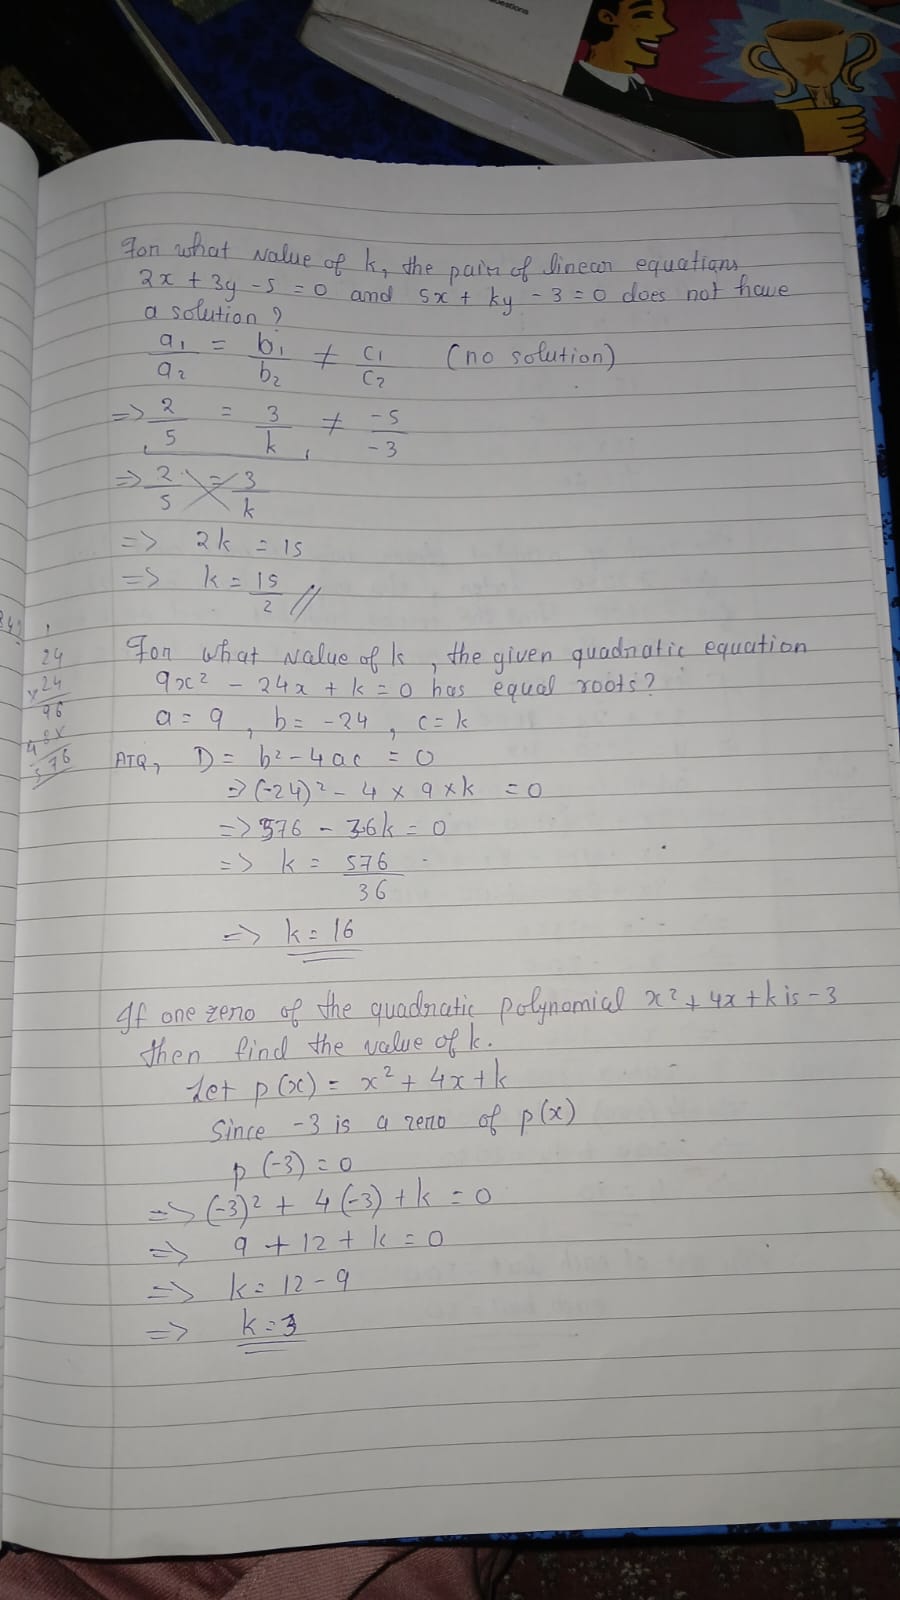 uestions
For what value of k, the pair of linear equations
2x + 3y - 5 = 0 and 5x + ky - 3 = 0 does not have
a solution?
a₁/a₂ = b₁/b₂ ≠ c₁/c₂ (no solution)
=> 2/5 = 3/k ≠ -5/-3
=> 2/5 = 3/k
=> 2k = 15
=> k = 15/2 //
For what value of k, the given quadratic equation
9x² - 24x + k = 0 has equal roots?
a = 9, b = -24, c = k
ATQ, D = b² - 4ac = 0
=> (-24)² - 4 × 9 × k = 0
=> 576 - 36k = 0
=> k = 576/36
=> k = 16
24
× 24
96
48×
576
If one zero of the quadratic polynomial x² + 4x + k is -3
then find the value of k.
Let p(x) = x² + 4x + k
Since -3 is a zero of p(x)
p(-3) = 0
=> (-3)² + 4(-3) + k = 0
=> 9 + 12 + k = 0
=> k = 12 - 9
=> k = 3